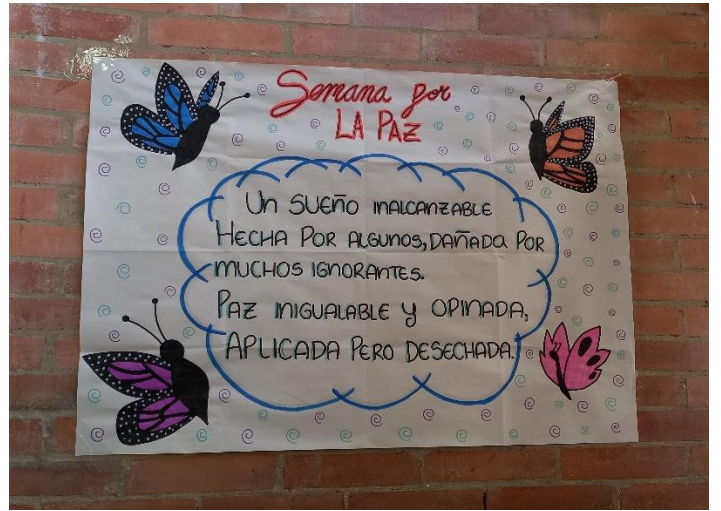 Semana por
LA PAZ
Un SUEÑO INALCANZABLE
HECHA POR ALGUNOS, DAÑADA POR
MUCHOS IGNORANTES.
PAZ INIGUALABLE Y OPINADA,
APLICADA PERO DESECHADA.